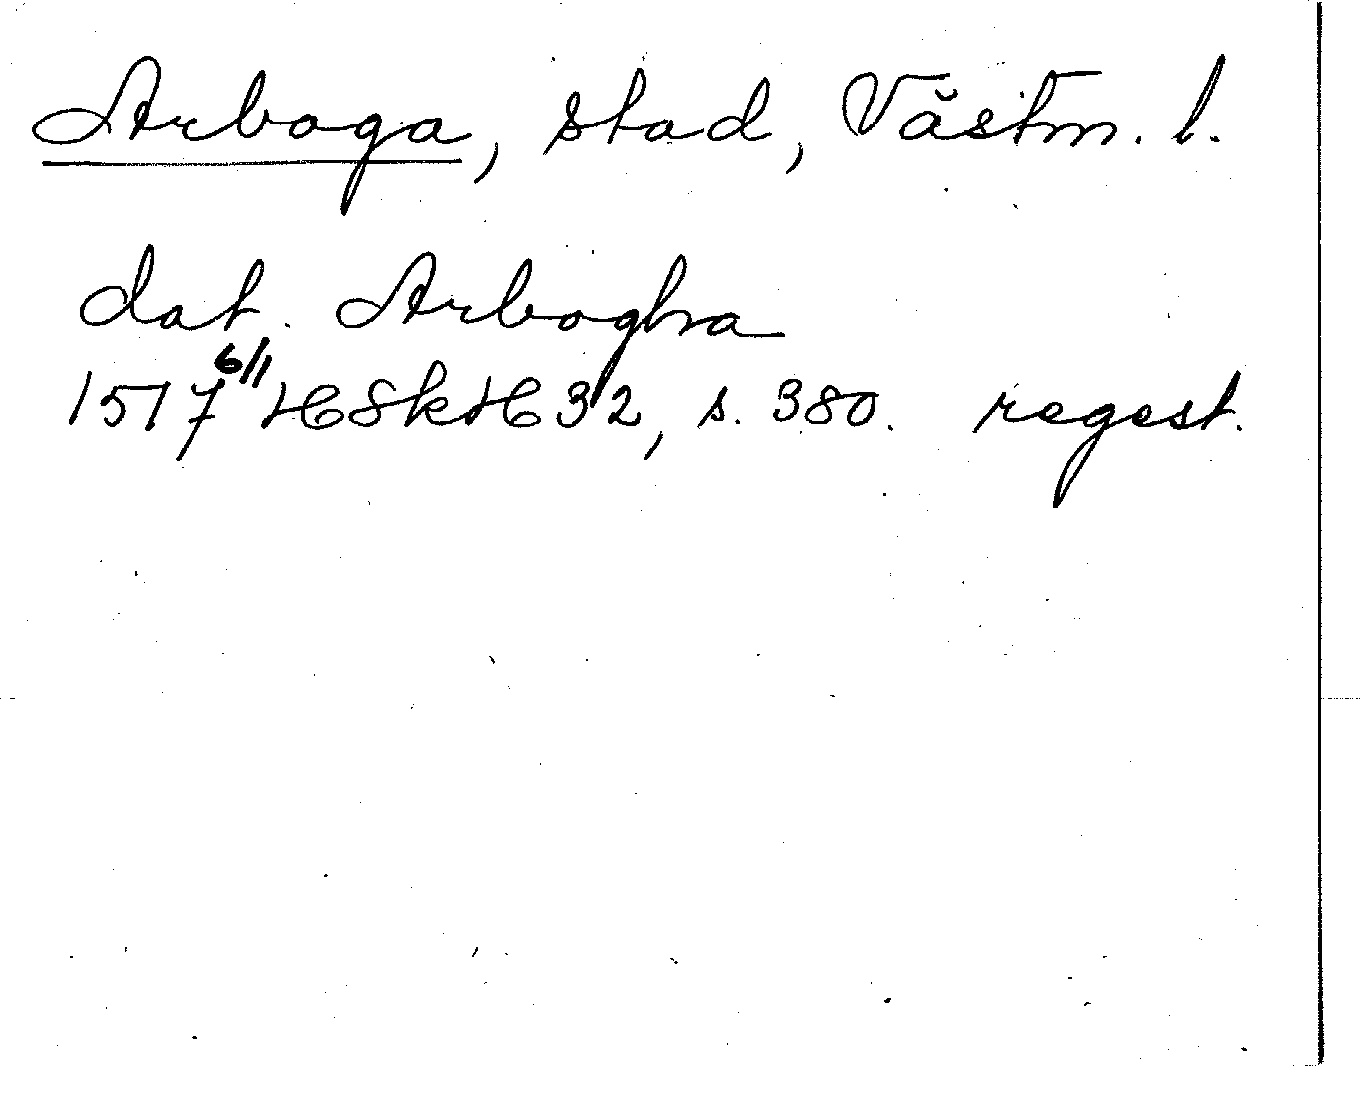 Arboga, stad, Västm. l.
dat. Arbogha
1517 6/1 HSkH 32, s. 380. regest.